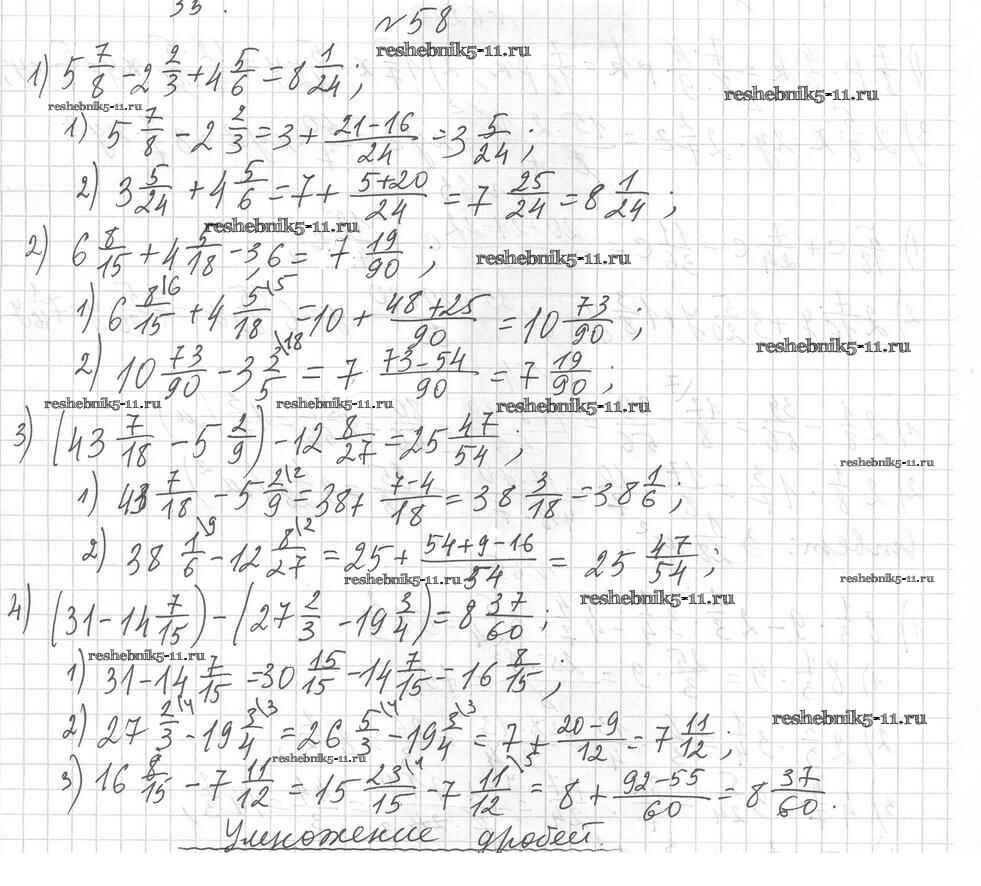 33.
№58
reshebnik5-11.ru
1) 5 7/8 - 2 2/3 + 4 5/6 = 8 1/24;
reshebnik5-11.ru
reshebnik5-11.ru
1) 5 7/8 - 2 2/3 = 3 + (21-16)/24 = 3 5/24;
2) 3 5/24 + 4 5/6 = 7 + (5+20)/24 = 7 25/24 = 8 1/24;
reshebnik5-11.ru
2) 6 8/15 + 4 5/18 - 3,6 = 7 19/90;
reshebnik5-11.ru
1) 6 8\6/15 + 4 5\5/18 = 10 + (48+25)/90 = 10 73/90;
reshebnik5-11.ru
2) 10 73/90 - 3 3\18/5 = 7 (73-54)/90 = 7 19/90;
reshebnik5-11.ru reshebnik5-11.ru reshebnik5-11.ru
3) (43 7/18 - 5 2/9) - 12 8/27 = 25 47/54;
reshebnik5-11.ru
1) 43 7/18 - 5 2\2/9 = 38 + (7-4)/18 = 38 3/18 = 38 1/6;
2) 38 1\9/6 - 12 8\2/27 = 25 + (54+9-16)/54 = 25 47/54;
reshebnik5-11.ru reshebnik5-11.ru
reshebnik5-11.ru
4) (31 - 14 7/15) - (27 2/3 - 19 3/4) = 8 37/60;
reshebnik5-11.ru
1) 31 - 14 7/15 = 30 15/15 - 14 7/15 = 16 8/15;
2) 27 2\4/3 - 19 3\3/4 = 26 5\4/3 - 19 3\3/4 = 7 + (20-9)/12 = 7 11/12;
reshebnik5-11.ru
reshebnik5-11.ru
3) 16 8/15 - 7 11/12 = 15 23\4/15 - 7 11\5/12 = 8 + (92-55)/60 = 8 37/60.
Умножение дробей.